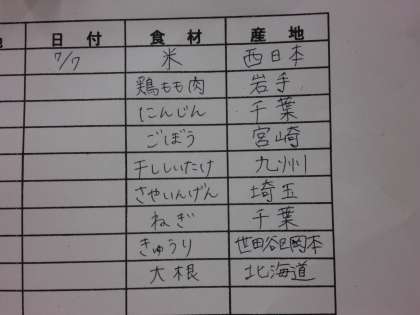 日付 食材 産地
7/7 米 西日本
鶏もも肉 岩手
にんじん 千葉
ごぼう 宮崎
干ししいたけ 九州
さやいんげん 埼玉
ねぎ 千葉
きゅうり 世田谷区岡本
大根 北海道